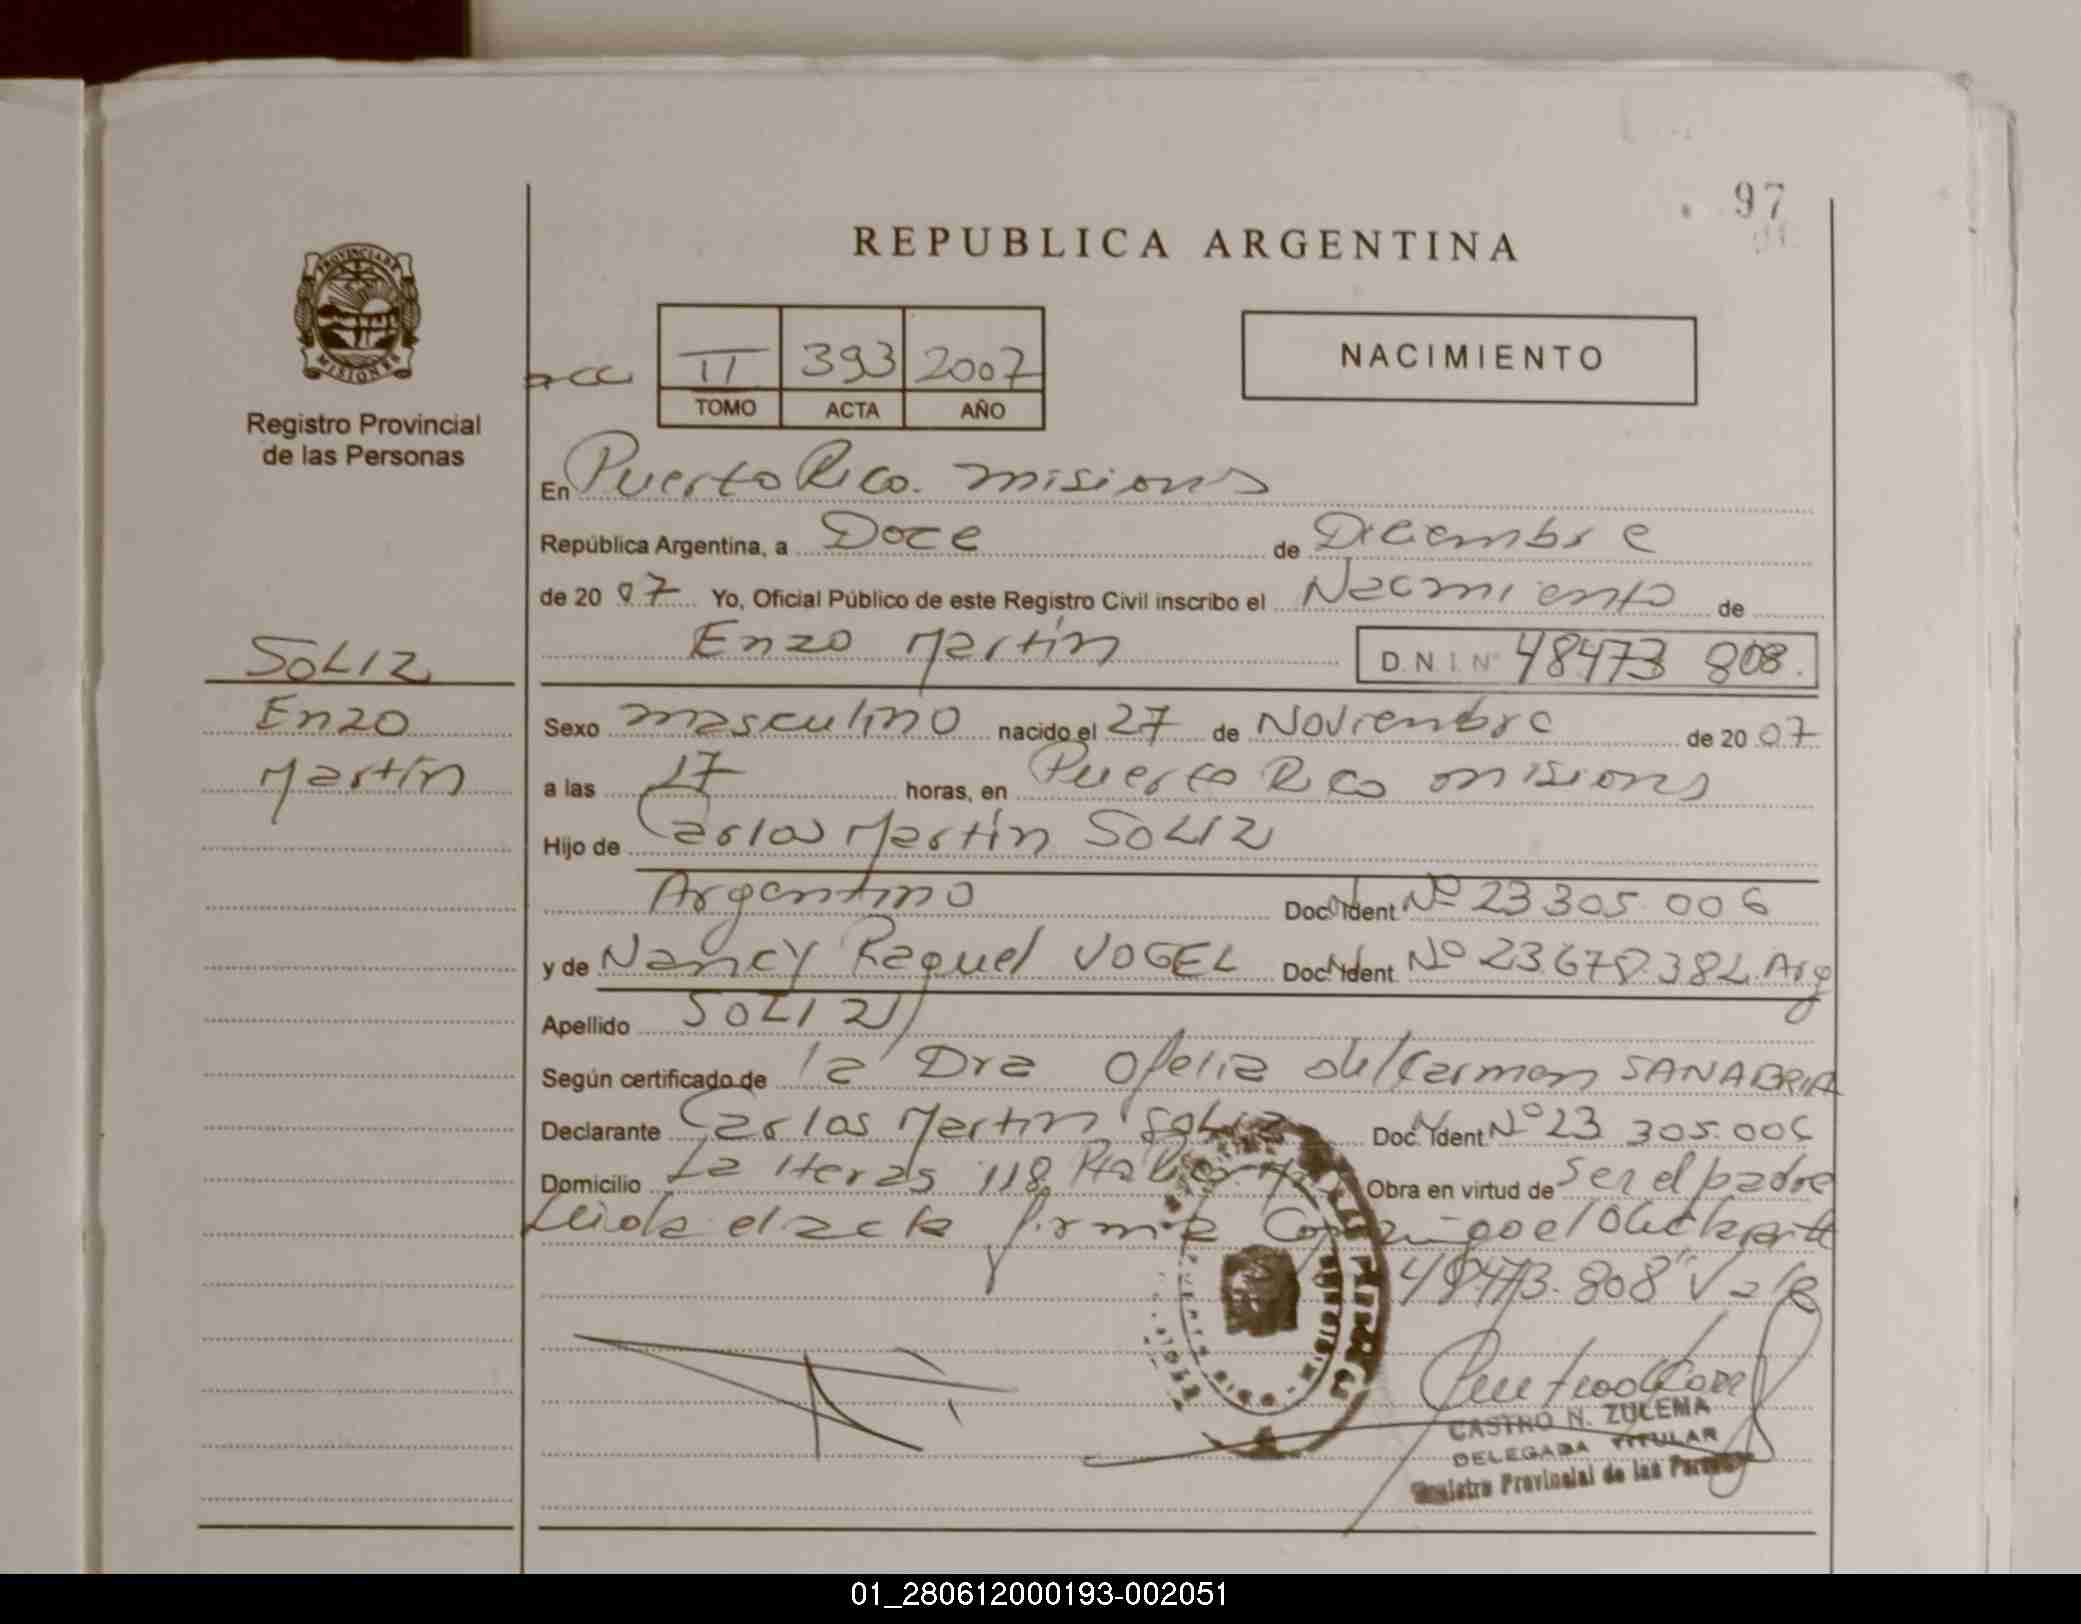 97
REPUBLICA ARGENTINA
PROVINCIA DE
MISIONES
Registro Provincial
de las Personas
II 393 2007
TOMO ACTA AÑO
NACIMIENTO
En Puerto Rico. misiones
República Argentina, a Doce de Diciembre
de 2007 Yo, Oficial Público de este Registro Civil inscribo el Nacimiento de
Enzo Martín D.N.I. Nº 48473 808.
SOLIZ
Enzo
Martín
Sexo masculino nacido el 27 de Noviembre de 2007
a las 17 horas, en Puerto Rico misiones
Hijo de Carlos Martín SOLIZ
Argentino Doc. Ident. Nº 23 305.006
y de Nancy Raquel VOGEL Doc. Ident. Nº 23.678.382. Arg
Apellido SOLIZ
Según certificado de la Dra Ofelia del Carmen SANABRIA
Declarante Carlos Martín Soliz Doc. Ident. Nº 23 305.006
Domicilio La Heras 118 Obra en virtud de ser el padre
Leida el acta firma
48473.808" Vale
CASTRO N. ZULEMA
DELEGADA TITULAR
Registro Provincial de las Personas
01_280612000193-002051